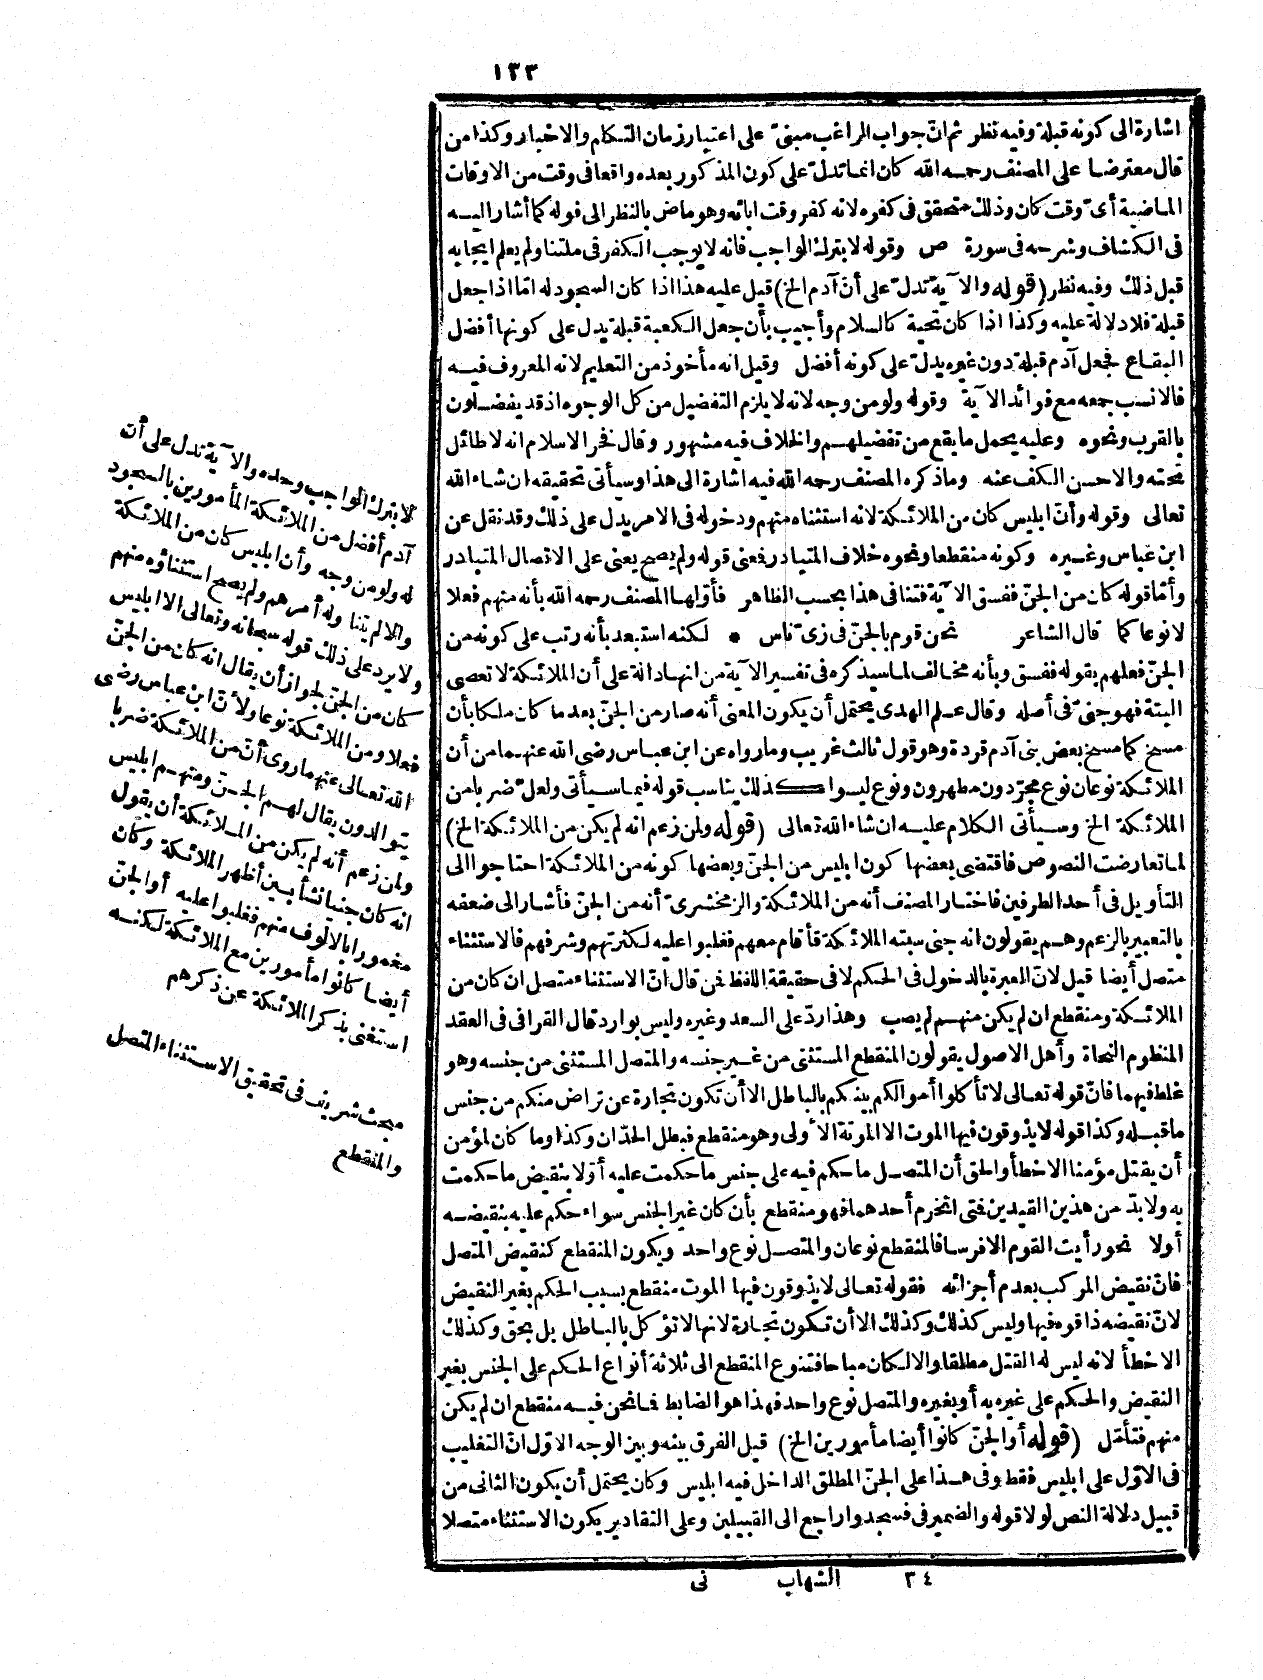 ١٣٣
اشارة الى كونه قبلة وفيه نظر ثم انّ جواب الراغب مبنىّ على اعتبار زمان التكلم والاخبار وكذا من
قال معترضا على المصنف رحمه الله كان انما تدلّ على كون المذكور بعده واقعا فى وقت من الاوقات
الماضية أىّ وقت كان وذلك متحقق فى كفره لانه كفر وقت ابائه وهو ماض بالنظر الى قوله كما أشار اليه
فى الكشاف وشرحه فى سورة ص وقوله لا بترك الواجب فانه لا يوجب الكفر فى ملتنا ولم يعلم ايجابه
قبل ذلك وفيه نظر (قوله والآية تدلّ على أنّ آدم الخ) قيل عليه هذا اذا كان السجود له امّا اذا جعل
قبلة فلا دلالة عليه وكذا اذا كان تحية كالسلام وأجيب بأن جعل الكعبة قبلة يدل على كونها أفضل
البقاع فجعل آدم قبلة دون غيره يدلّ على كونه أفضل وقيل انه مأخوذ من التعليم لانه المعروف فيه
فالانسب جمعه مع فوائد الآية وقوله ولو من وجه لانه لا يلزم التفضيل من كل الوجوه اذ قد يفضلون
بالقرب ونحوه وعليه يحمل ما يقع من تفضيلهم والخلاف فيه مشهور وقال فخر الاسلام انه لا طائل
تحته والاحسن الكف عنه وما ذكره المصنف رحمه الله فيه اشارة الى هذا وسيأتى تحقيقه ان شاء الله
تعالى وقوله وأنّ ابليس كان من الملائكة لانه استثناه منهم ودخوله فى الامر يدل على ذلك وقد نقل عن
ابن عباس وغيره وكونه منقطعا ونحوه خلاف المتبادر فمعنى قوله ولم يصح يعنى على الاتصال المتبادر
وأمّا قوله كان من الجنّ ففسق الآية فتنافى هذا بحسب الظاهر فأوّلها المصنف رحمه الله بأنه منهم فعلا
لا نوعا كما قال الشاعر نحن قوم بالجنّ فى زىّ ناس * لكنه استبعد بأنه رتب على كونه من
الجنّ فعلهم بقوله ففسق وبأنه مخالف لما سيذكره فى تفسير الآية من انها دالة على أن الملائكة لا تعصى
البتة فهو جنىّ فى أصله وقال علم الهدى يحتمل أن يكون المعنى أنه صار من الجنّ بعد ما كان ملكا بأن
مسخ كما مسخ بعض بنى آدم قردة وهو قول ثالث غريب وما رواه عن ابن عباس رضى الله عنهما من أن
الملائكة نوعان نوع مجرّدون مطهرون ونوع ليسوا كذلك يناسب قوله فيما سيأتى ولعلّ ضربا من
الملائكة الخ وسيأتى الكلام عليه ان شاء الله تعالى (قوله ولمن زعم انه لم يكن من الملائكة الخ)
لما تعارضت النصوص فاقتضى بعضها كون ابليس من الجنّ وبعضها كونه من الملائكة احتاجوا الى
التأويل فى أحد الطرفين فاختار المصنف أنه من الملائكة والزمخشرىّ أنه من الجنّ فأشار الى ضعفه
بالتعبير بالزعم وهم يقولون انه جنى سبته الملائكة فأقام معهم فغلبوا عليه لكثرتهم وشرفهم فالاستثناء
متصل أيضا قيل لانّ العبرة بالدخول فى الحكم لا فى حقيقة اللفظ فمن قال انّ الاستثناء متصل ان كان من
الملائكة ومنقطع ان لم يكن منهم لم يصب وهذا ردّ على السعد وغيره وليس بوارد قال القرافى فى العقد
المنظوم النحاة وأهل الاصول يقولون المنقطع المستثنى من غير جنسه والمتصل المستثنى من جنسه وهو
غلط فيهما فانّ قوله تعالى لا تأكلوا أموالكم بينكم بالباطل الا أن تكون تجارة عن تراض منكم من جنس
ما قبله وكذا قوله لا يذوقون فيها الموت الا الموتة الأولى وهو منقطع فبطل الحدّان وكذا وما كان لمؤمن
أن يقتل مؤمنا الا خطأ والحق أن المتصل ما حكم فيه على جنس ما حكمت عليه أوّلا بنقيض ما حكمت
به ولا بدّ من هذين القيدين فمتى انخرم أحدهما فهو منقطع بأن كان غير الجنس سواء حكم عليه بنقيضه
أولا نحو رأيت القوم الا فرسا فالمنقطع نوعان والمتصل نوع واحد ويكون المنقطع كنقيض المتصل
فانّ نقيض المركب بعدم أجزائه فقوله تعالى لا يذوقون فيها الموت منقطع بسبب الحكم بغير النقيض
لانّ نقيضه ذاقوه فيها وليس كذلك وكذلك الا أن تكون تجارة لانها لا تؤكل بالباطل بل بحق وكذلك
الا خطأ لانه ليس له القتل مطلقا والا لكان مباحا فتنوع المنقطع الى ثلاثة أنواع الحكم على الجنس بغير
النقيض والحكم على غيره به أو بغيره والمتصل نوع واحد فهذا هو الضابط فما نحن فيه منقطع ان لم يكن
منهم فتأمّل (قوله أو الجنّ كانوا أيضا مأمورين الخ) قيل الفرق بينه وبين الوجه الاوّل انّ التغليب
فى الاوّل على ابليس فقط وفى هذا على الجنّ المطلق الداخل فيه ابليس وكان يحتمل أن يكون الثانى من
قبيل دلالة النص لولا قوله والضمير فى فسجدوا راجع الى القبيلين وعلى التقادير يكون الاستثناء متصلا
٣٤ الشهاب نى
لا بترك الواجب وحده والآية تدل على أن
آدم أفضل من الملائكة المأمورين بالسجود
له ولو من وجه وأن ابليس كان من الملائكة
والا لم يتناوله أمرهم ولم يصح استثناؤه منهم
ولا يرد على ذلك قوله سبحانه وتعالى الا ابليس
كان من الجنّ لجواز أن يقال انه كان من الجنّ
فعلا ومن الملائكة نوعا ولأنّ ابن عباس رضى
الله تعالى عنهما روى أنّ من الملائكة ضربا
يتوالدون يقال لهم الجنّ ومنهم ابليس
ولمن زعم أنه لم يكن من الملائكة أن يقول
انه كان جنيا نشأ بين أظهر الملائكة وكان
مغمورا بالالوف منهم فغلبوا عليه أو الجنّ
أيضا كانوا مأمورين مع الملائكة لكنه
استغنى بذكر الملائكة عن ذكرهم
مبحث شريف فى تحقيق الاستثناء المتصل
والمنقطع